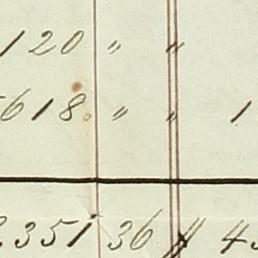 120 " "
618 " " 1
351 36 4